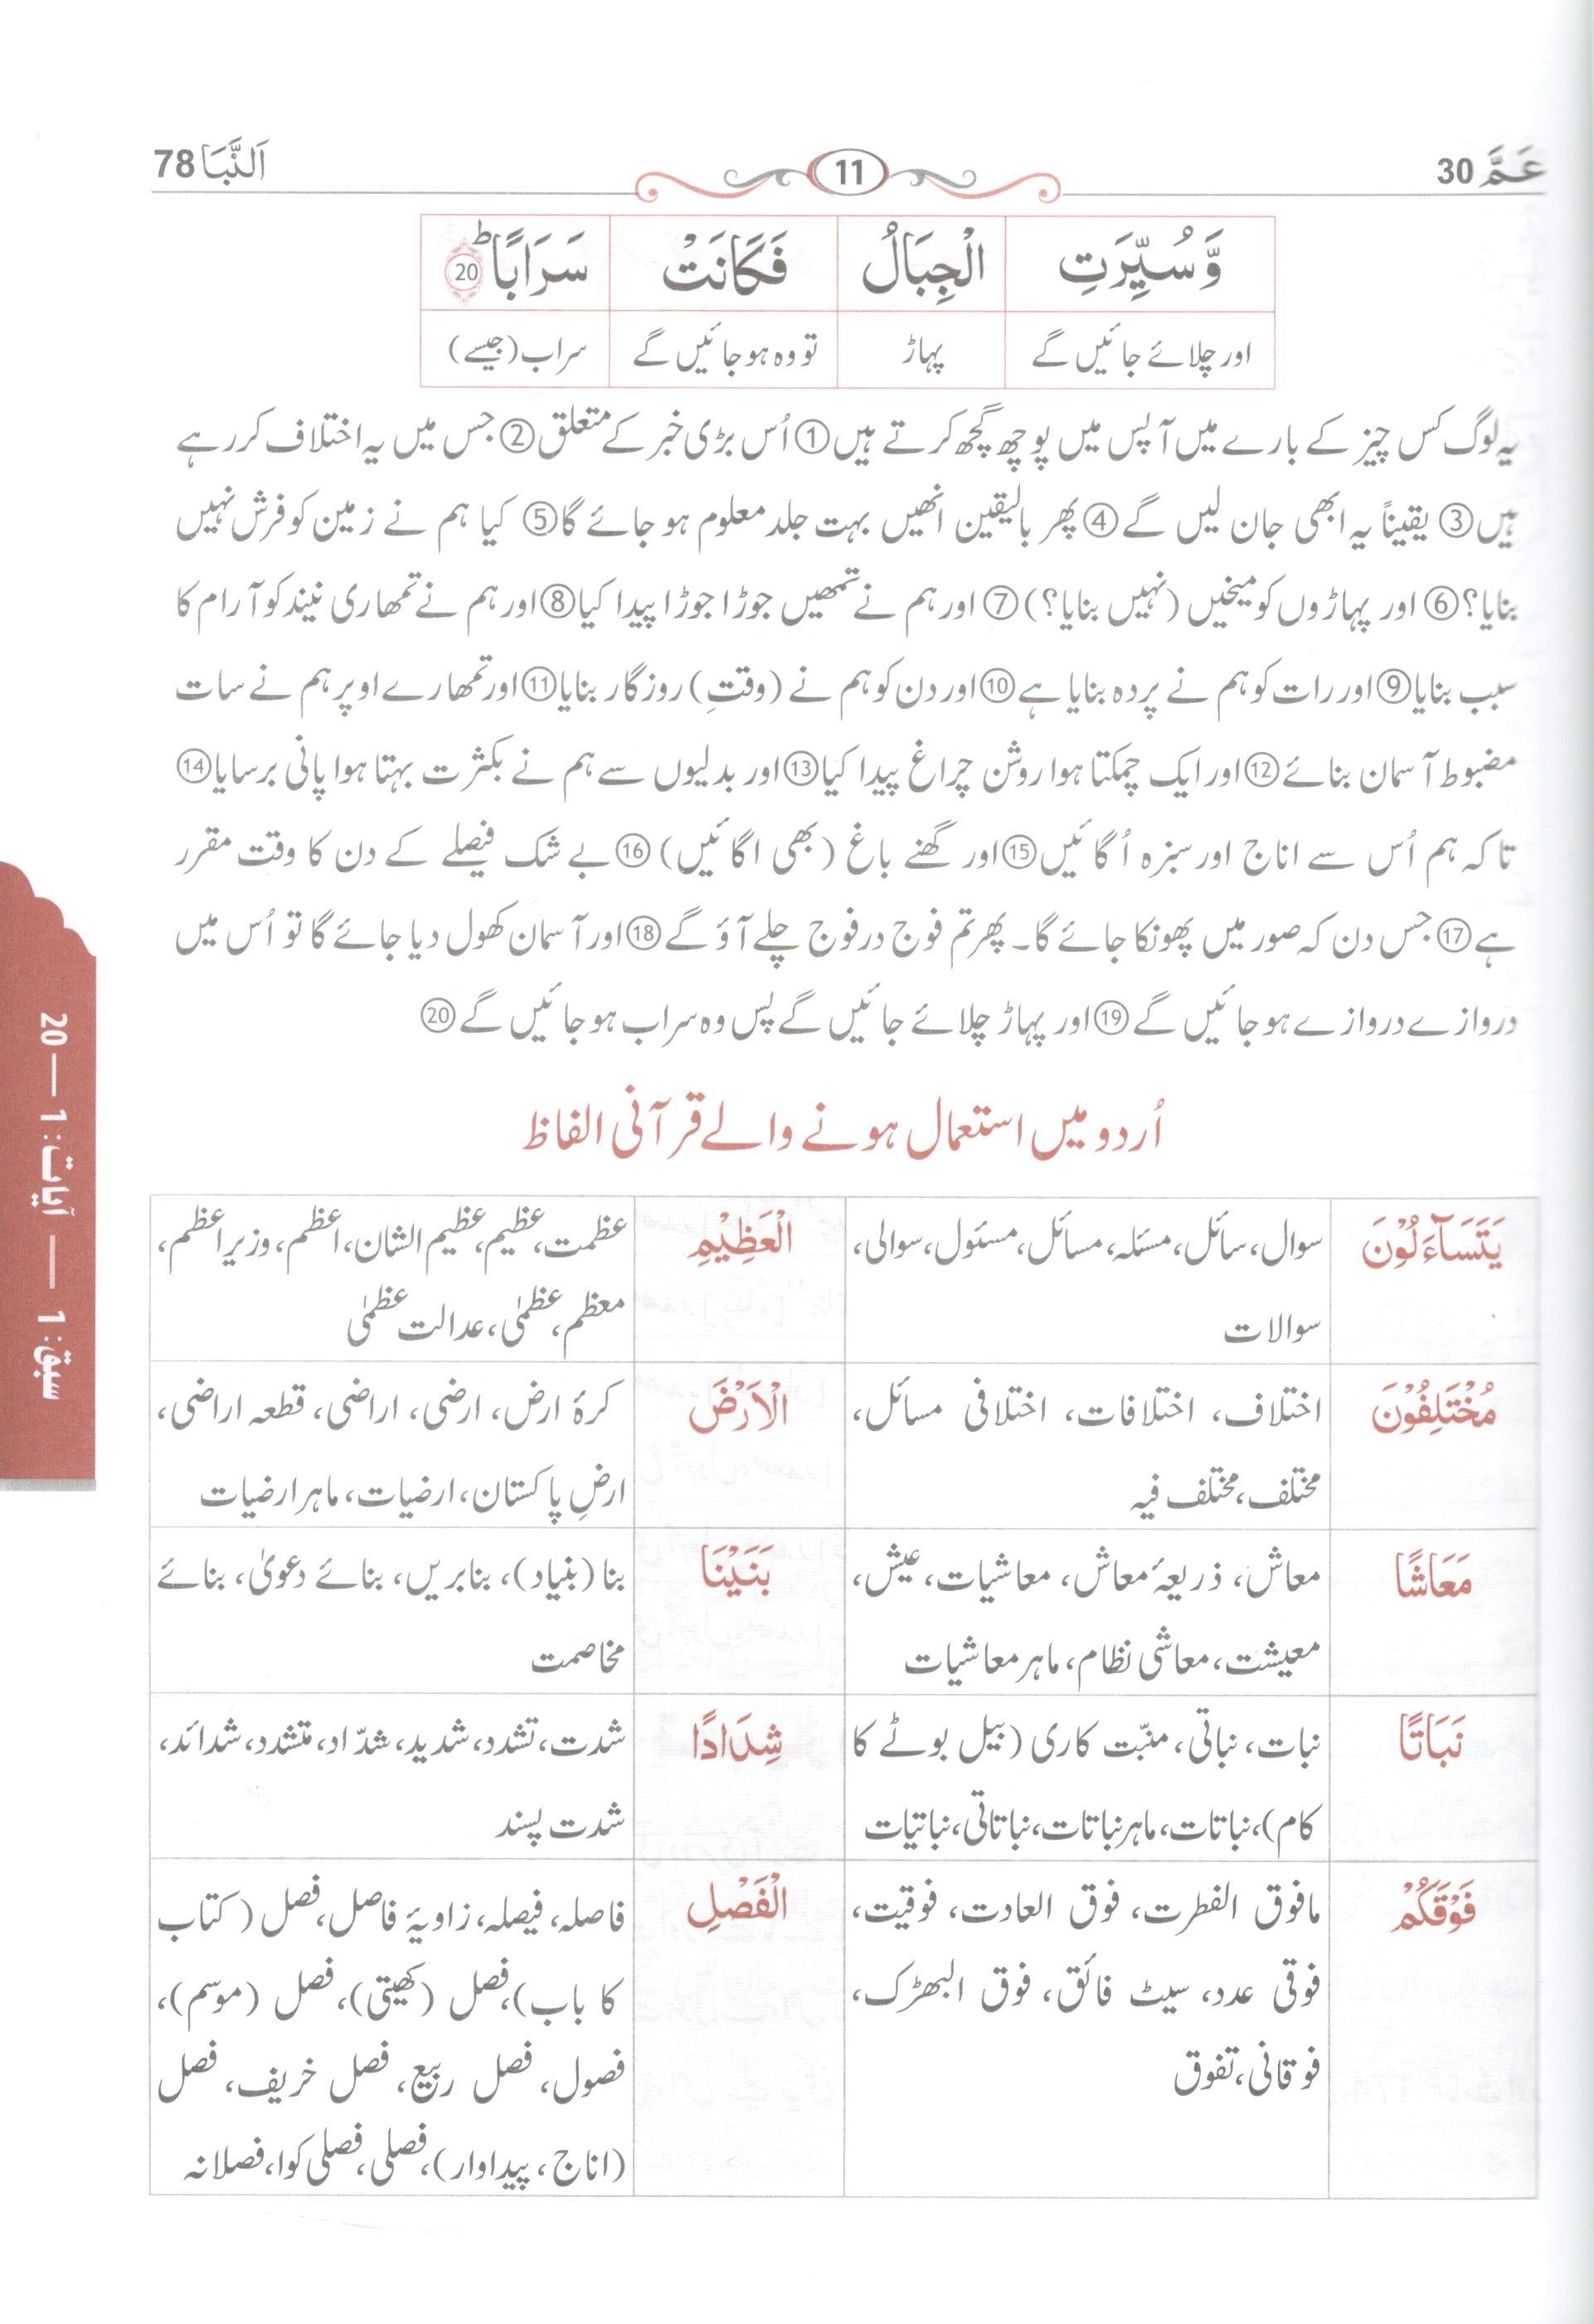 عَمَّ 30
11
اَلنَّبَا 78
وَّسُيِّرَتِ الْجِبَالُ فَكَانَتْ سَرَابًا ؕ 20
اور چلائے جائیں گے پہاڑ تو وہ ہو جائیں گے سراب (جیسے)
یہ لوگ کس چیز کے بارے میں آپس میں پوچھ گچھ کرتے ہیں ① اُس بڑی خبر کے متعلق ② جس میں یہ اختلاف کر رہے
ہیں ③ یقیناً یہ ابھی جان لیں گے ④ پھر بالیقین انھیں بہت جلد معلوم ہو جائے گا ⑤ کیا ہم نے زمین کو فرش نہیں
بنایا؟ ⑥ اور پہاڑوں کو میخیں (نہیں بنایا؟) ⑦ اور ہم نے تمھیں جوڑا جوڑا پیدا کیا ⑧ اور ہم نے تمھاری نیند کو آرام کا
سبب بنایا ⑨ اور رات کو ہم نے پردہ بنایا ہے ⑩ اور دن کو ہم نے (وقتِ) روزگار بنایا ⑪ اور تمھارے اوپر ہم نے سات
مضبوط آسمان بنائے ⑫ اور ایک چمکتا ہوا روشن چراغ پیدا کیا ⑬ اور بدلیوں سے ہم نے بکثرت بہتا ہوا پانی برسایا ⑭
تا کہ ہم اُس سے اناج اور سبزہ اُگائیں ⑮ اور گھنے باغ (بھی اگائیں) ⑯ بے شک فیصلے کے دن کا وقت مقرر
ہے ⑰ جس دن کہ صور میں پھونکا جائے گا۔ پھر تم فوج در فوج چلے آؤ گے ⑱ اور آسمان کھول دیا جائے گا تو اُس میں
دروازے دروازے ہو جائیں گے ⑲ اور پہاڑ چلائے جائیں گے پس وہ سراب ہو جائیں گے ⑳
اُردو میں استعمال ہونے والے قرآنی الفاظ
يَتَسَآءَلُوْنَ
سوال، سائل، مسئلہ، مسائل، مسئول، سوالی،
سوالات
الْعَظِيْمِ
عظمت، عظیم، عظیم الشان، اعظم، وزیرِاعظم،
معظم، عظمٰی، عدالت عظمٰی
مُخْتَلِفُوْنَ
اختلاف، اختلافات، اختلافی مسائل،
مختلف، مختلف فیہ
الْاَرْضَ
کرۂ ارض، ارضی، اراضی، قطعہ اراضی،
ارضِ پاکستان، ارضیات، ماہر ارضیات
مَعَاشًا
معاش، ذریعۂ معاش، معاشیات، عیش،
معیشت، معاشی نظام، ماہر معاشیات
بَنَيْنَا
بنا (بنیاد)، بنابریں، بنائے دعویٰ، بنائے
مخاصمت
نَبَاتًا
نبات، نباتی، منبّت کاری (بیل بوٹے کا
کام)، نباتات، ماہر نباتات، نباتاتی، نباتیات
شِدَادًا
شدت، تشدد، شدید، شدّاد، متشدد، شدائد،
شدت پسند
فَوْقَكُمْ
مافوق الفطرت، فوق العادت، فوقیت،
فوقی عدد، سیٹ فائق، فوق البھڑک،
فوقانی، تفوق
الْفَصْلِ
فاصلہ، فیصلہ، زاویۂ فاصل، فصل (کتاب
کا باب)، فصل (کھیتی)، فصل (موسم)،
فصول، فصل ربیع، فصل خریف، فصل
(اناج، پیداوار)، فصلی، فصلی کوا، فصلانہ
سبق: 1 — آیات: 1 — 20